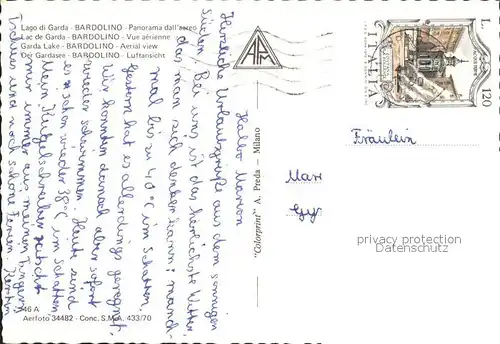 Lago di Garda - BARDOLINO - Panorama dall'aereo
Lac de Garda - BARDOLINO - Vue aérienne
Garda Lake - BARDOLINO - Aerial view
Der Gardasee - BARDOLINO - Luftansicht
Hallo Marion
Herrliche Urlaubsgrüße aus dem sonnigen
Süden. Bei uns ist das herrlichste Wetter,
das man sich denken kann; manch-
mal bis zu 40°C im Schatten.
Gestern hat es allerdings geregnet,
wir konnten danach aber sofort
wieder schwimmen. Heute sind
es schon wieder 38°C im Schatten.
Mein Kugelschreiber rutscht
mir immer aus meinen Fingern.
Tschüs und noch schöne Ferien Kerstin
946 A
Aerfoto 34482 - Conc. S.M.A. 433/70
"Colorprint" A. Preda - Milano
AFM
L. 120
ITALIA
Fräulein
Mar
privacy protection
oldthing.de